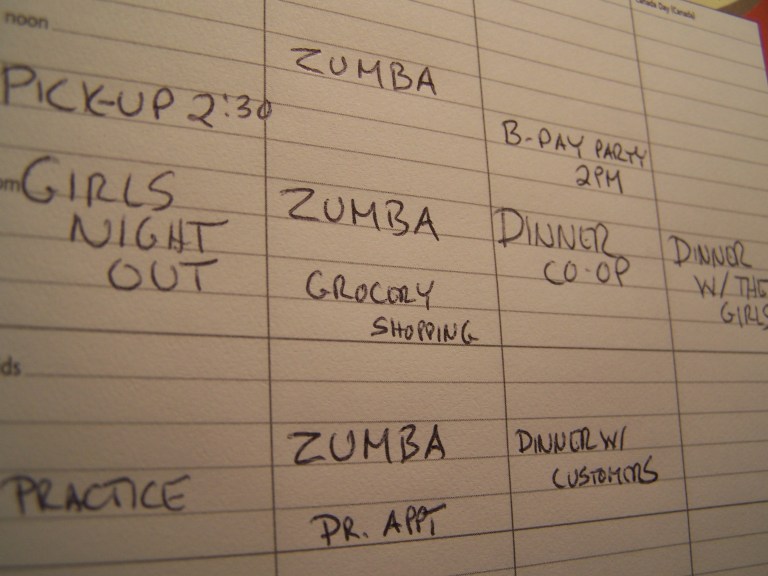 Canada Day (Canada)
noon
ZUMBA
PICK-UP 2:30
B-DAY PARTY
2PM
GIRLS
NIGHT
OUT
ZUMBA
GROCORY
SHOPPING
DINNER
CO-OP
DINNER
W/ THE
GIRLS
ds
ZUMBA
DINNER W/
CUSTOMERS
PRACTICE
DR. APPT